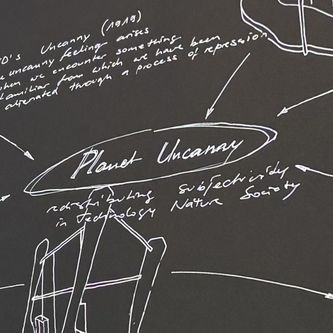 D's Uncanny (1919)
uncanny feeling arises
when we encounter something
familiar from which we have been
alienated through a process of repression
Planet Uncanny
redistributing subjectivity
in Technology Nature Society